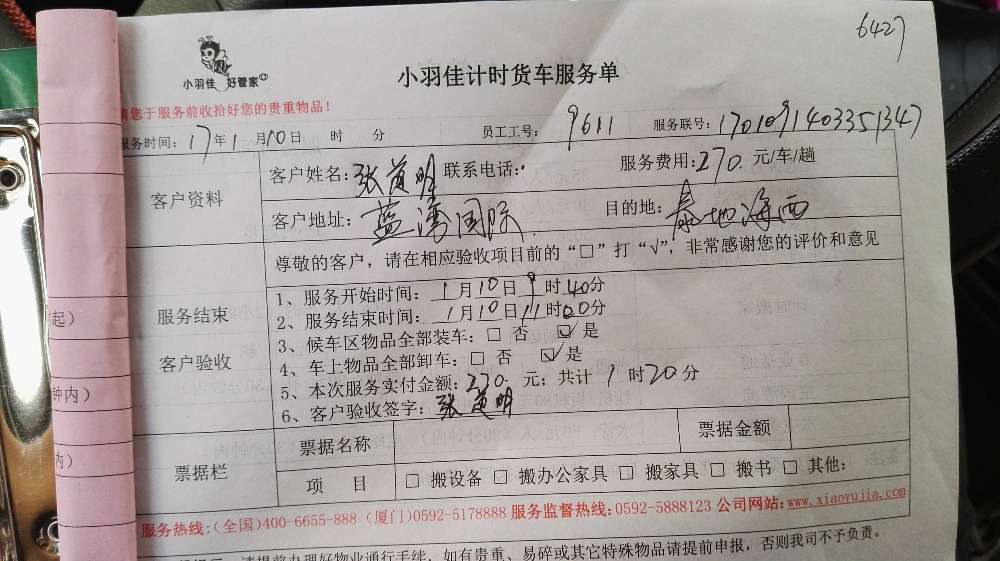 6427
小羽佳 好管家
小羽佳计时货车服务单
您于服务前收拾好您的贵重物品!
服务时间: 17年1月10日 时 分 员工工号: 9611 服务联号: 1701091403351347
客户资料
客户姓名: 张黄明 联系电话: 服务费用: 270. 元/车/趟
客户地址: 蓝湾国际 目的地: 泰地海西
尊敬的客户, 请在相应验收项目前的“□”打“√”, 非常感谢您的评价和意见
服务结束
客户验收
1、服务开始时间: 1月10日9时40分
2、服务结束时间: 1月10日11时00分
3、候车区物品全部装车: □ 否 ☑ 是
4、车上物品全部卸车: □ 否 ☑ 是
5、本次服务实付金额: 270. 元; 共计 1 时20分
6、客户验收签字: 张黄明
起)
钟内)
内)
票据栏
票据名称 票据金额
项 目 □ 搬设备 □ 搬办公家具 □ 搬家具 □ 搬书 □ 其他:
服务热线:(全国)400-6655-888 (厦门)0592-5178888 服务监督热线:0592-5888123 公司网站:www.xiaoyujia.com
请提前办理好物业通行手续, 如有贵重、易碎或其它特殊物品请提前申报, 否则我司不予负责。